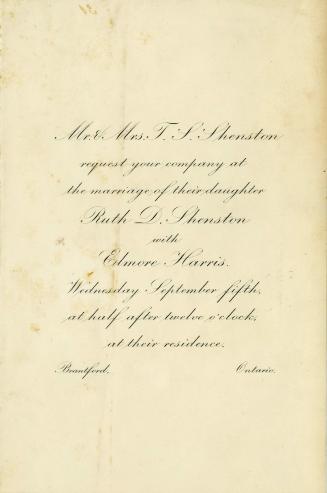 Mr. & Mrs. T. S. Shenston
request your company at
the marriage of their daughter
Ruth D. Shenston
with
Elmore Harris.
Wednesday September fifth,
at half after twelve o'clock,
at their residence.
Brantford, Ontario.